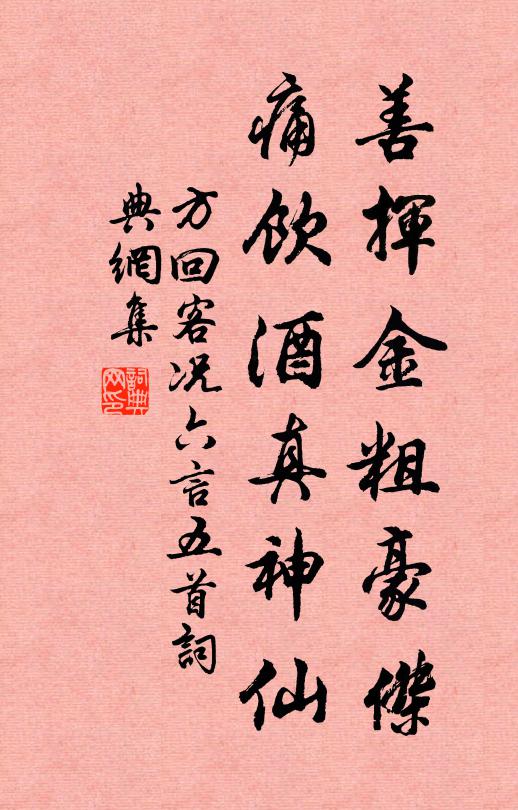 善揮金粗豪傑
痛飲酒真神仙
方回客况六言五首詞
典網集
詞典
网印